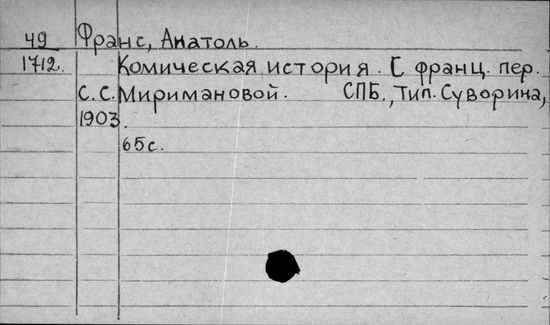 49 Франс, Анатоль.
1712. Комическая история. С франц. пер.
С.С. Миримановой. СПБ., Тип. Суворина,
1903.
65с.